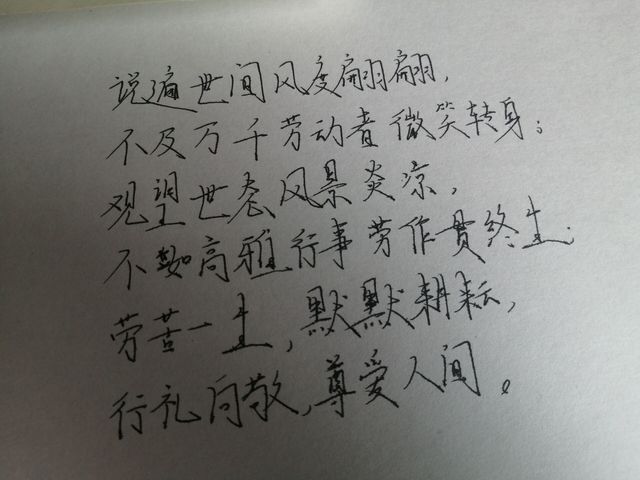 说遍世间风度翩翩，
不及万千劳动者微笑转身；
观望世态风景炎凉，
不如高雅行事劳作贯终生；
劳苦一生，默默耕耘，
行礼问敬，尊爱人间。